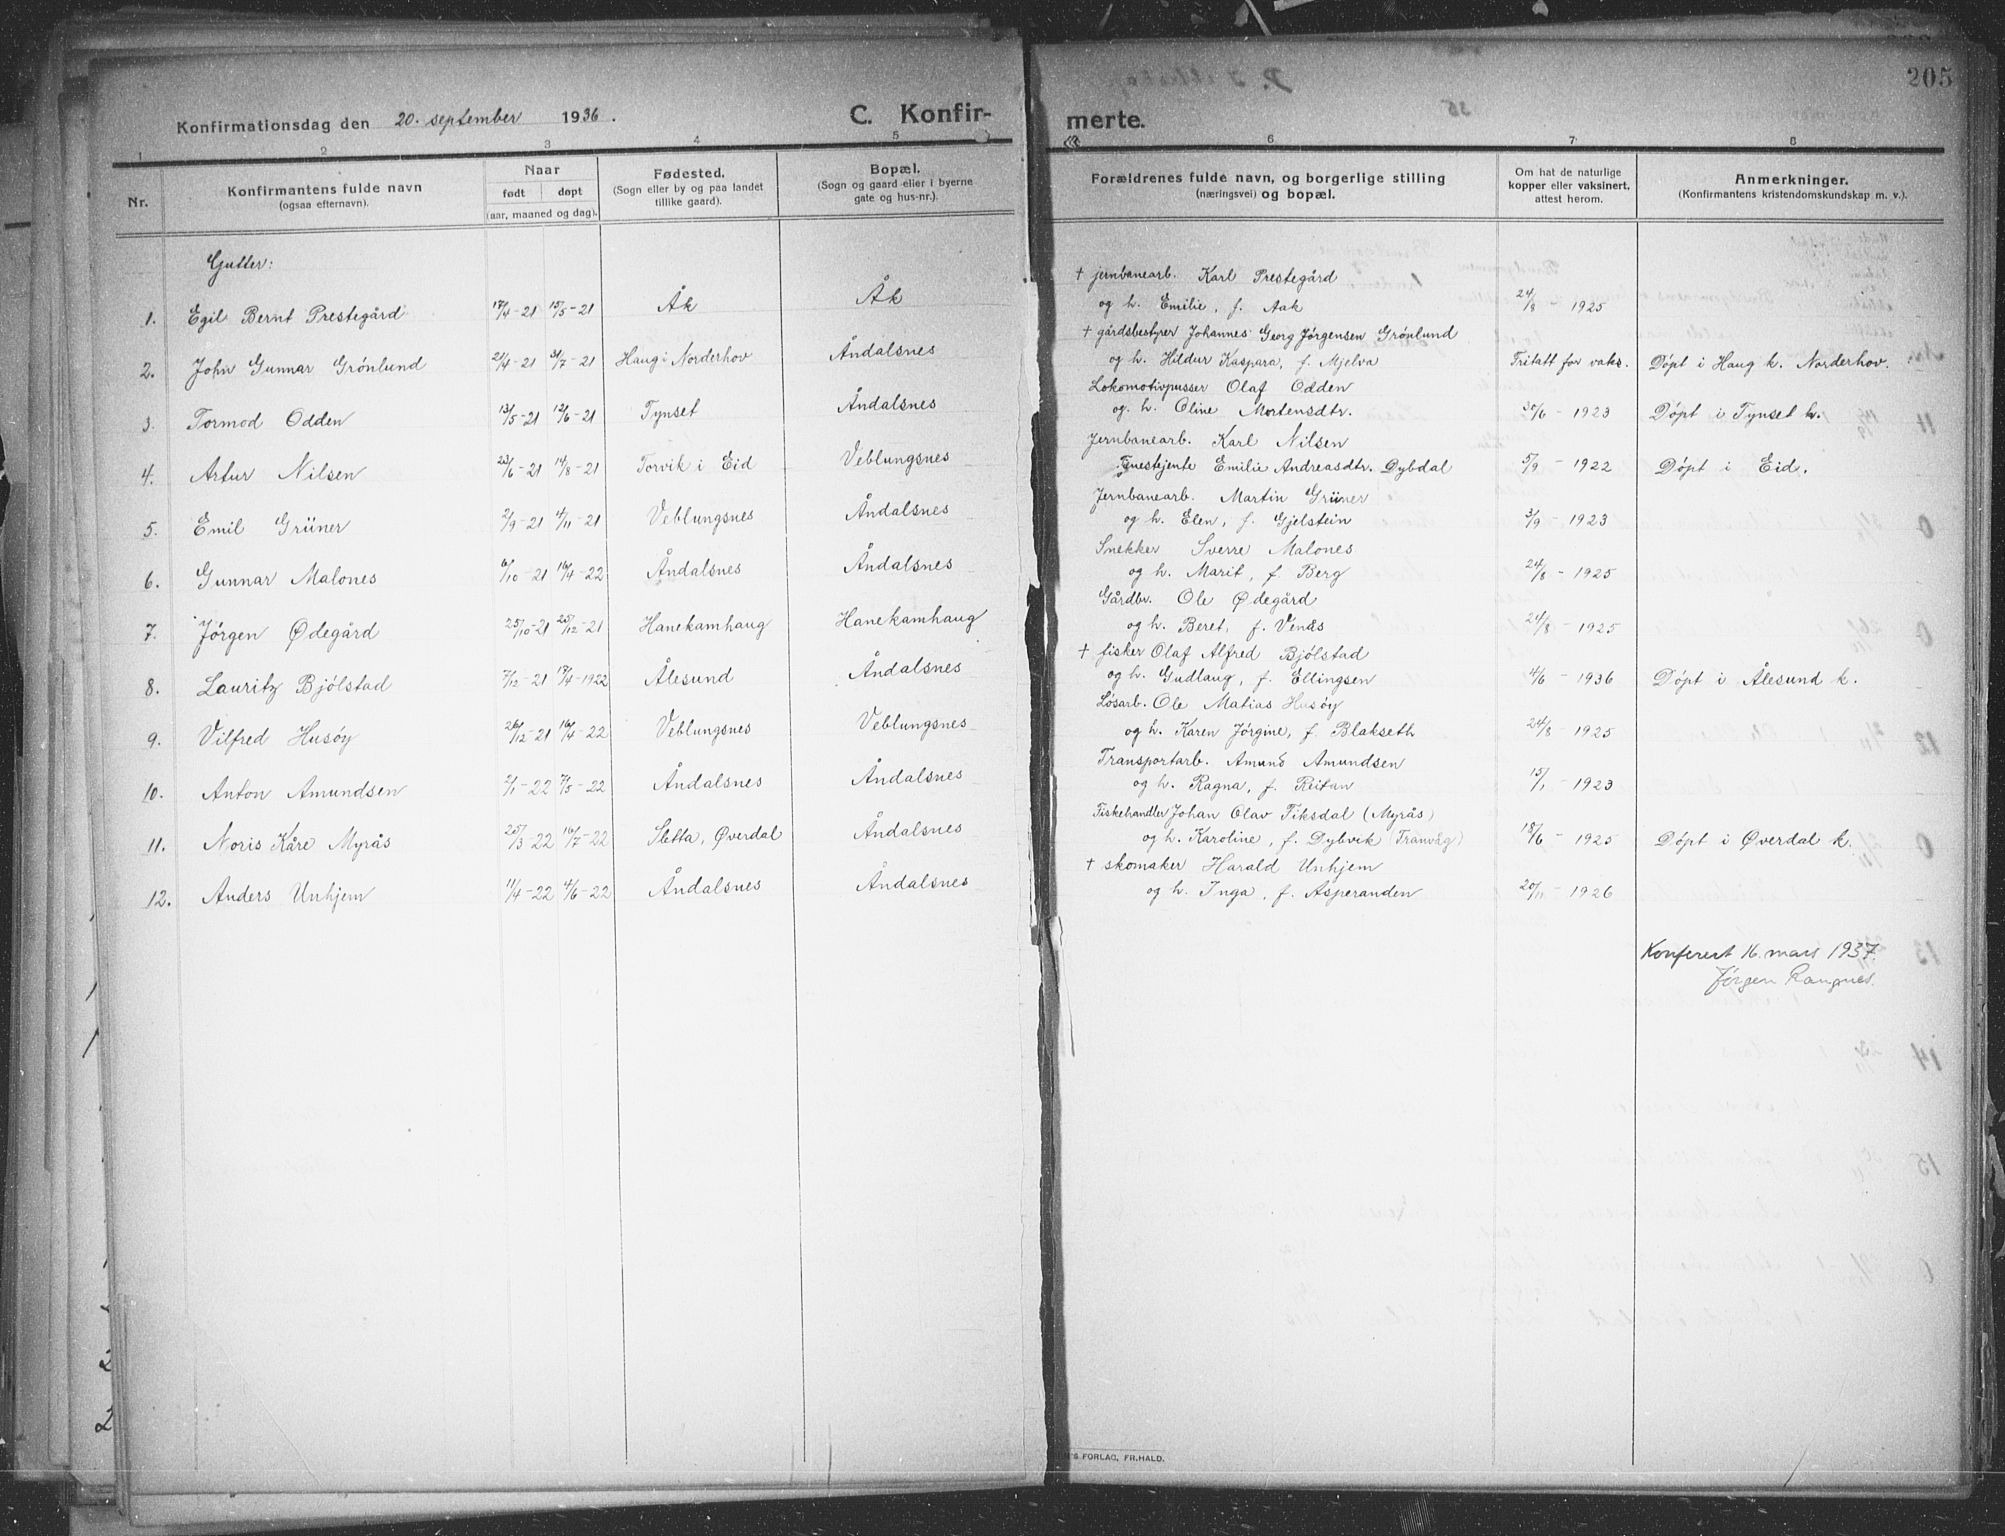 205
Konfirmationsdag den 20. september 1936.
C. Konfirmerte.
1 2 3 4 5 6 7 8
Nr.
Konfirmantens fulde navn
(ogsaa efternavn).
Naar
født døpt
(aar, maaned og dag).
Fødested.
(Sogn eller by og paa landet
tillike gaard).
Bopæl.
(Sogn og gaard eller i byerne
gate og hus-nr.).
Forældrenes fulde navn, og borgerlige stilling
(næringsvei) og bopæl.
Om hat de naturlige
kopper eller vaksinert,
attest herom.
Anmerkninger.
(Konfirmantens kristendomskundskap m. v.).
Gutter:
† jernbanearb. Karl Prestegård
1. Egil Bernt Prestegård 17/4-21 15/5-21 Åk Åk og h. Emilie, f. Aak 24/8 - 1925
† gårdsbestyrer Johannes Georg Jørgensen Grønlund
2. John Gunnar Grønlund 21/4-21 31/7-21 Haug i Norderhov Åndalsnes og h. Hildur Kaspara, f. Mjelva Fritatt for vaks. Døpt i Haug k. Norderhov.
Lokomotivpusser Olaf Odden
3. Tormod Odden 13/5-21 12/6-21 Tynset Åndalsnes og h. Oline Mortensdtr. 30/6 - 1923 Døpt i Tynset k.
Jernbanearb. Karl Nilsen
4. Artur Nilsen 23/6-21 14/8-21 Torvik i Eid Veblungsnes Emilie Andreasdtr. Dybdal 5/9 - 1922 Døpt i Eid.
Jernbanearb. Martin Grüner
5. Emil Grüner 2/9-21 4/11-21 Veblungsnes Åndalsnes og h. Elen, f. Gjelstein 3/9 - 1923
Snekker Sverre Malones
6. Gunnar Malones 6/10-21 16/4-22 Åndalsnes Åndalsnes og h. Marit, f. Berg 24/8 - 1925
Gårdbr. Ole Ødegård
7. Jørgen Ødegård 25/10-21 25/12-21 Hanekamhaug Hanekamhaug og h. Beret, f. Venås 24/8 - 1925
† fisker Olaf Alfred Bjölstad
8. Lauritz Bjölstad 7/12-21 17/4-1922 Ålesund Åndalsnes og h. Gudlaug, f. Ellingsen 4/6 - 1936 Døpt i Ålesund k.
Løsarb. Ole Matias Husøy
9. Vilfred Husøy 26/12-21 16/4-22 Veblungsnes Veblungsnes og h. Karen Jørgine, f. Blakseth 24/8 - 1925
Transportarb. Amund Amundsen
10. Anton Amundsen 2/1-22 7/5-22 Åndalsnes Åndalsnes og h. Ragna, f. Reitan 15/1 - 1923
Fiskehandler Johan Olav Fiksdal (Myrås)
11. Noris Kåre Myrås 25/3-22 16/7-22 Sletta, Øverdal Åndalsnes og h. Karoline, f. Dybvik (Tranvåg) 18/6 - 1925 Døpt i Øverdal k.
† skomaker Harald Unhjem
12. Anders Unhjem 11/4-22 4/6-22 Åndalsnes Åndalsnes og h. Inga, f. Asperanden 20/11 - 1926
Konferert 16. mars 1937.
Jørgen Rangnes.
'S FORLAG, FR. HALD.